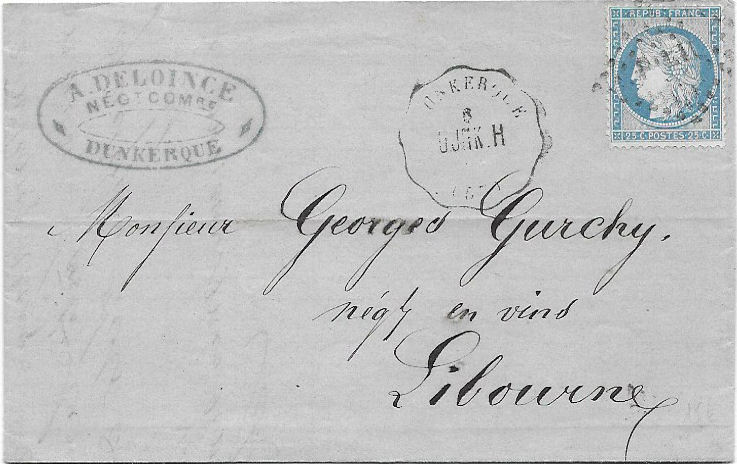 A. DELOINCE
NÉGT COMRE
DUNKERQUE
UNKERQUE
REPUB. FRANC.
25 C. POSTES 25 C.
Monsieur Georges Gurchy,
négt en vins
Libourne